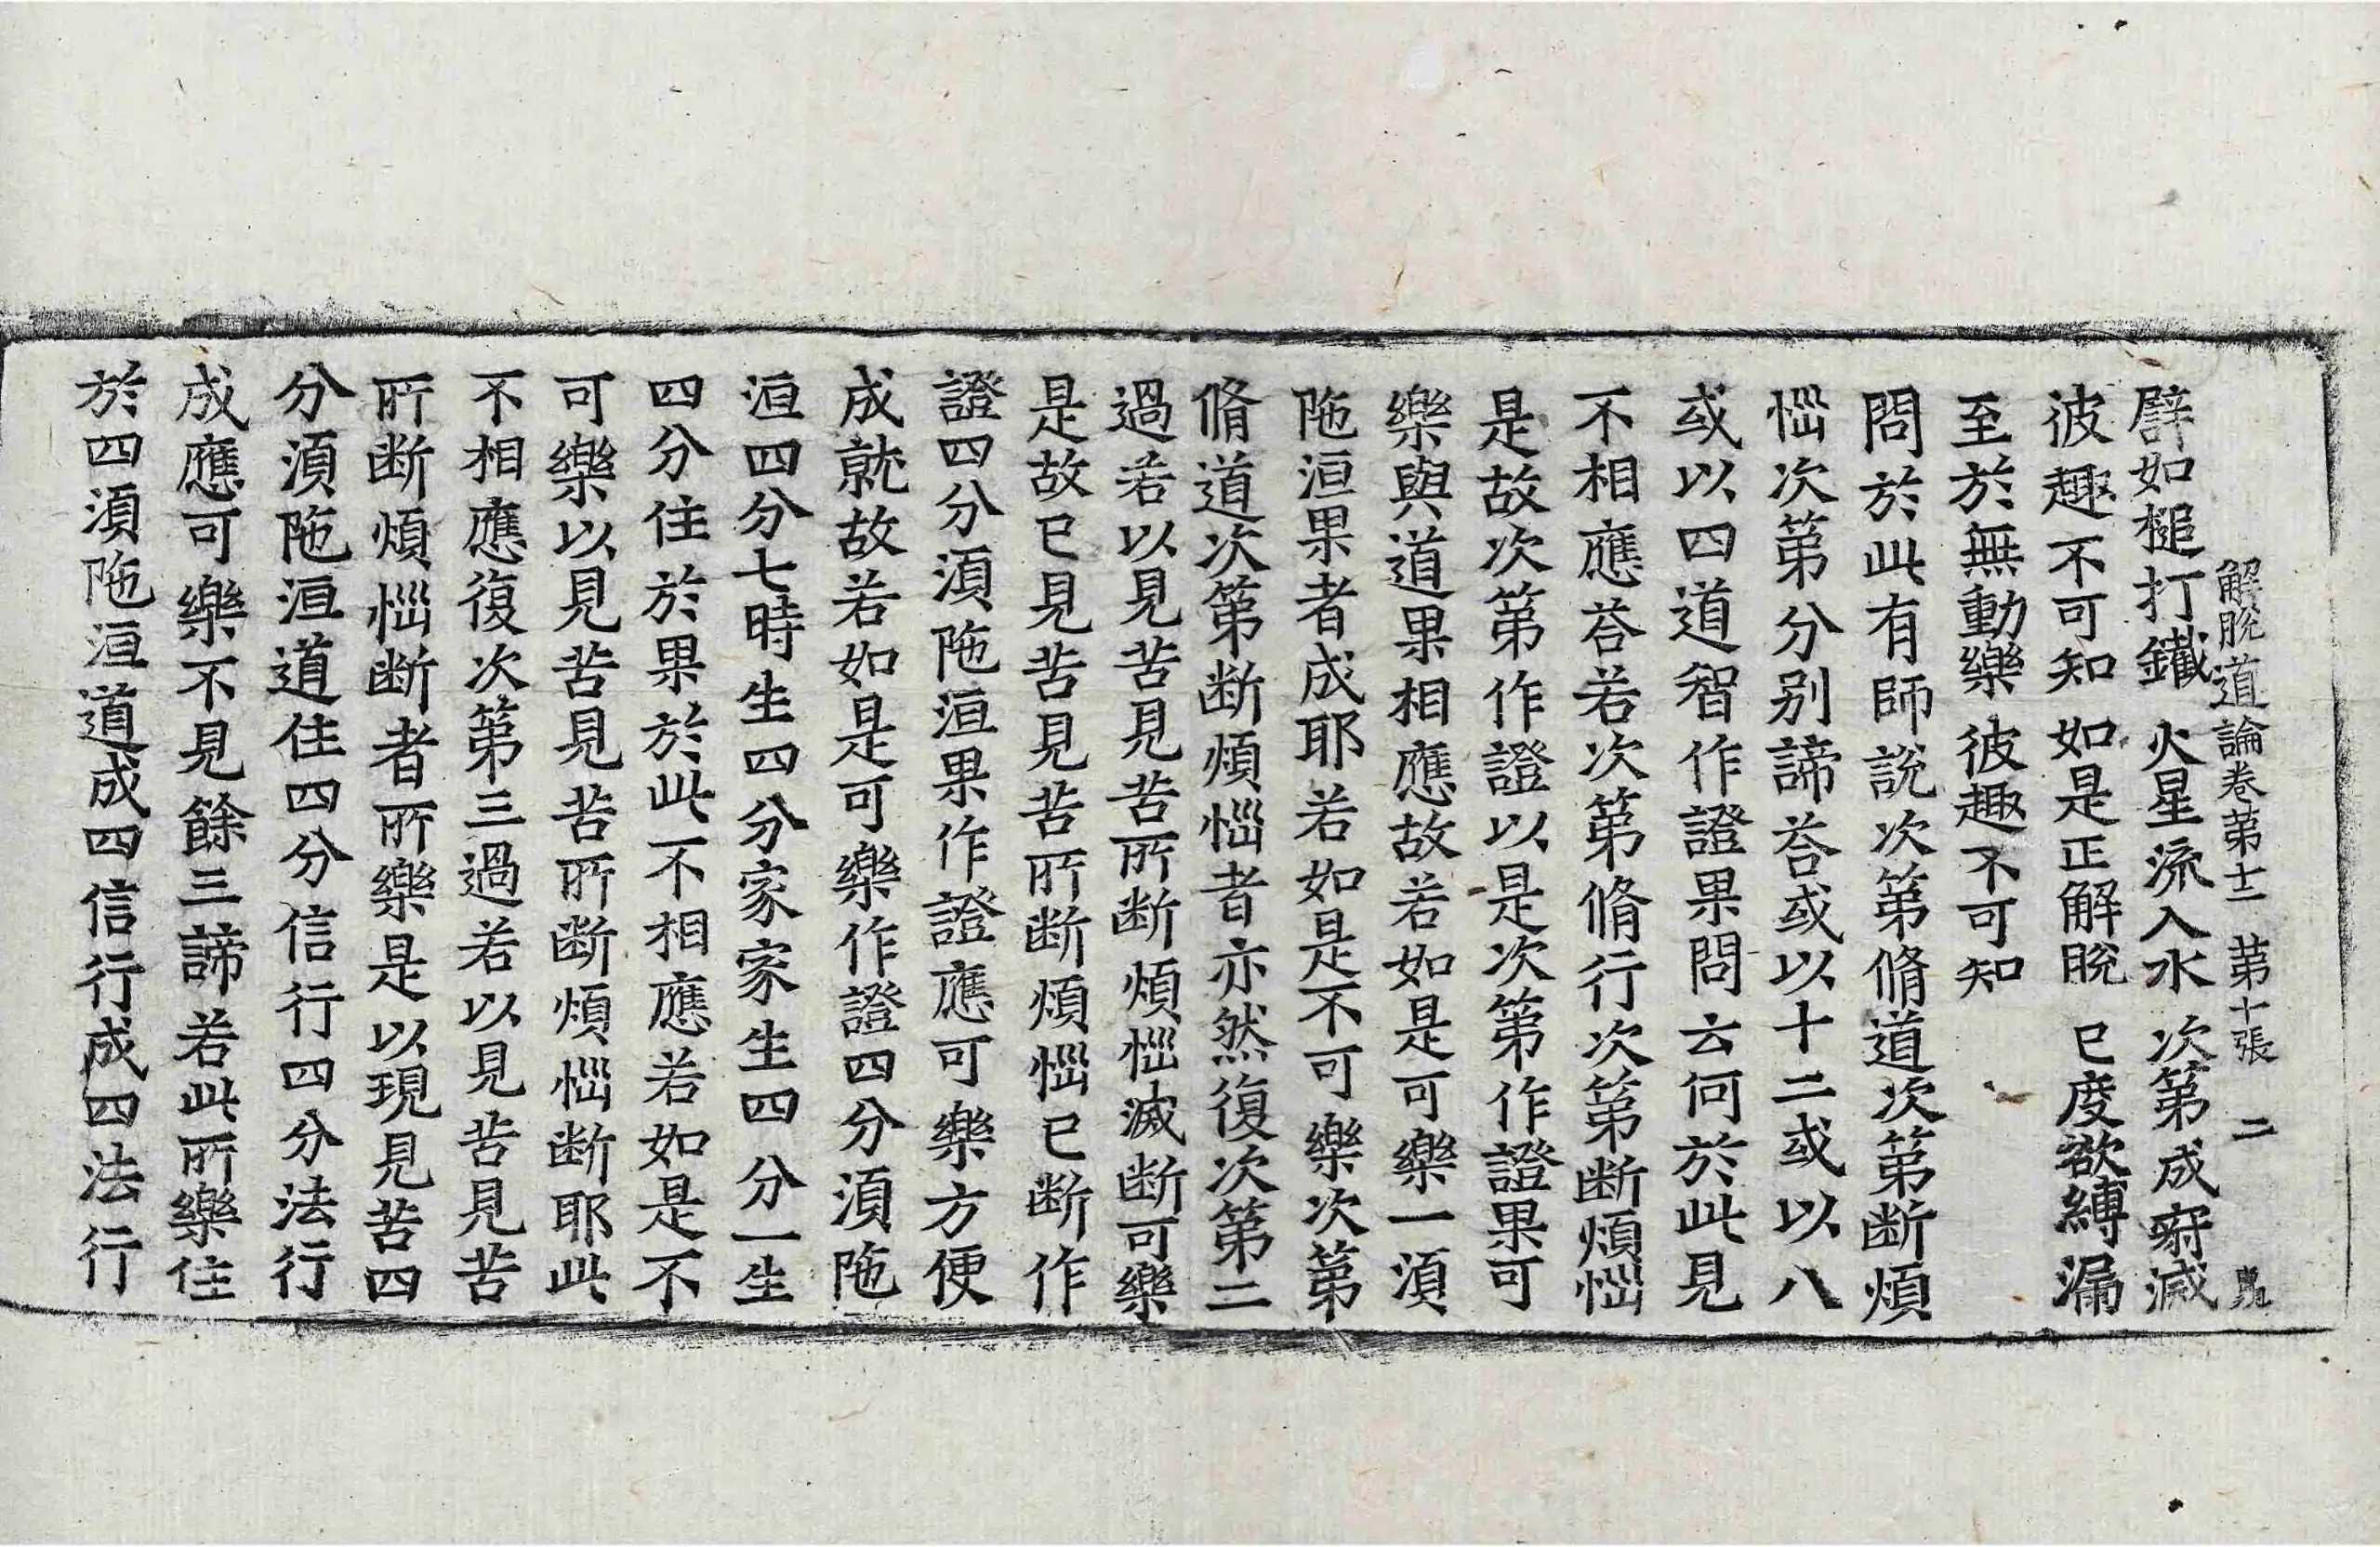 解脫道論卷第十二 第十張 二
譬如槌打鐵 火星流入水 次第成寂滅
彼趣不可知 如是正解脫 已度欲縛漏
至於無動樂 彼趣不可知
問於此有師說次第脩道次第断煩
惱次第分別諦荅或以十二或以八
或以四道智作證果問云何於此見
不相應荅若次第脩行次第断煩惱
是故次第作證以是次第作證果可
樂與道果相應故若如是可樂一湏
陁洹果者成耶若如是不可樂次第
脩道次第断煩惱者亦然復次第二
過若以見苦見苦所断煩惱滅断可樂
是故已見苦見苦所断煩惱已断作
證四分湏陁洹果作證應可樂方便
成就故若如是可樂作證四分湏陁
洹四分七時生四分家家生四分一生
四分住於果於此不相應若如是不
可樂以見苦見苦所断煩惱断耶此
不相應復次第三過若以見苦見苦
所断煩惱断者所樂是以現見苦四
分湏陁洹道住四分信行四分法行
成應可樂不見餘三諦若此所樂住
於四湏陁洹道成四信行成四法行